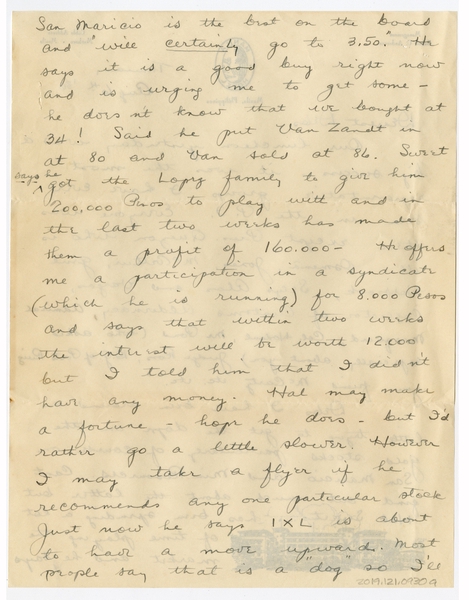 San Maricio is the best on the board
and "will certainly go to 3.50." He
says it is a good buy right now
and is urging me to get some -
he doesn't know that we bought at
34! Said he put Van Zandt in
at 80 and Van sold at 86. Sweet
says he
got the Lopez family to give him
200,000 Pesos to play with and in
the last two weeks has made
them a profit of 160.000 - He offers
me a participation in a syndicate
(which he is running) for 8.000 Pesos
and says that within two weeks
the interest will be worth 12.000
but I told him that I didn't
have any money. Hal may make
a fortune - hope he does - but I'd
rather go a little slower. However
I may take a flyer if he
recommends any one particular stock
Just now he says IXL is about
to have a move upward. Most
people say that is a "dog" so I'll
2019.121.0930a